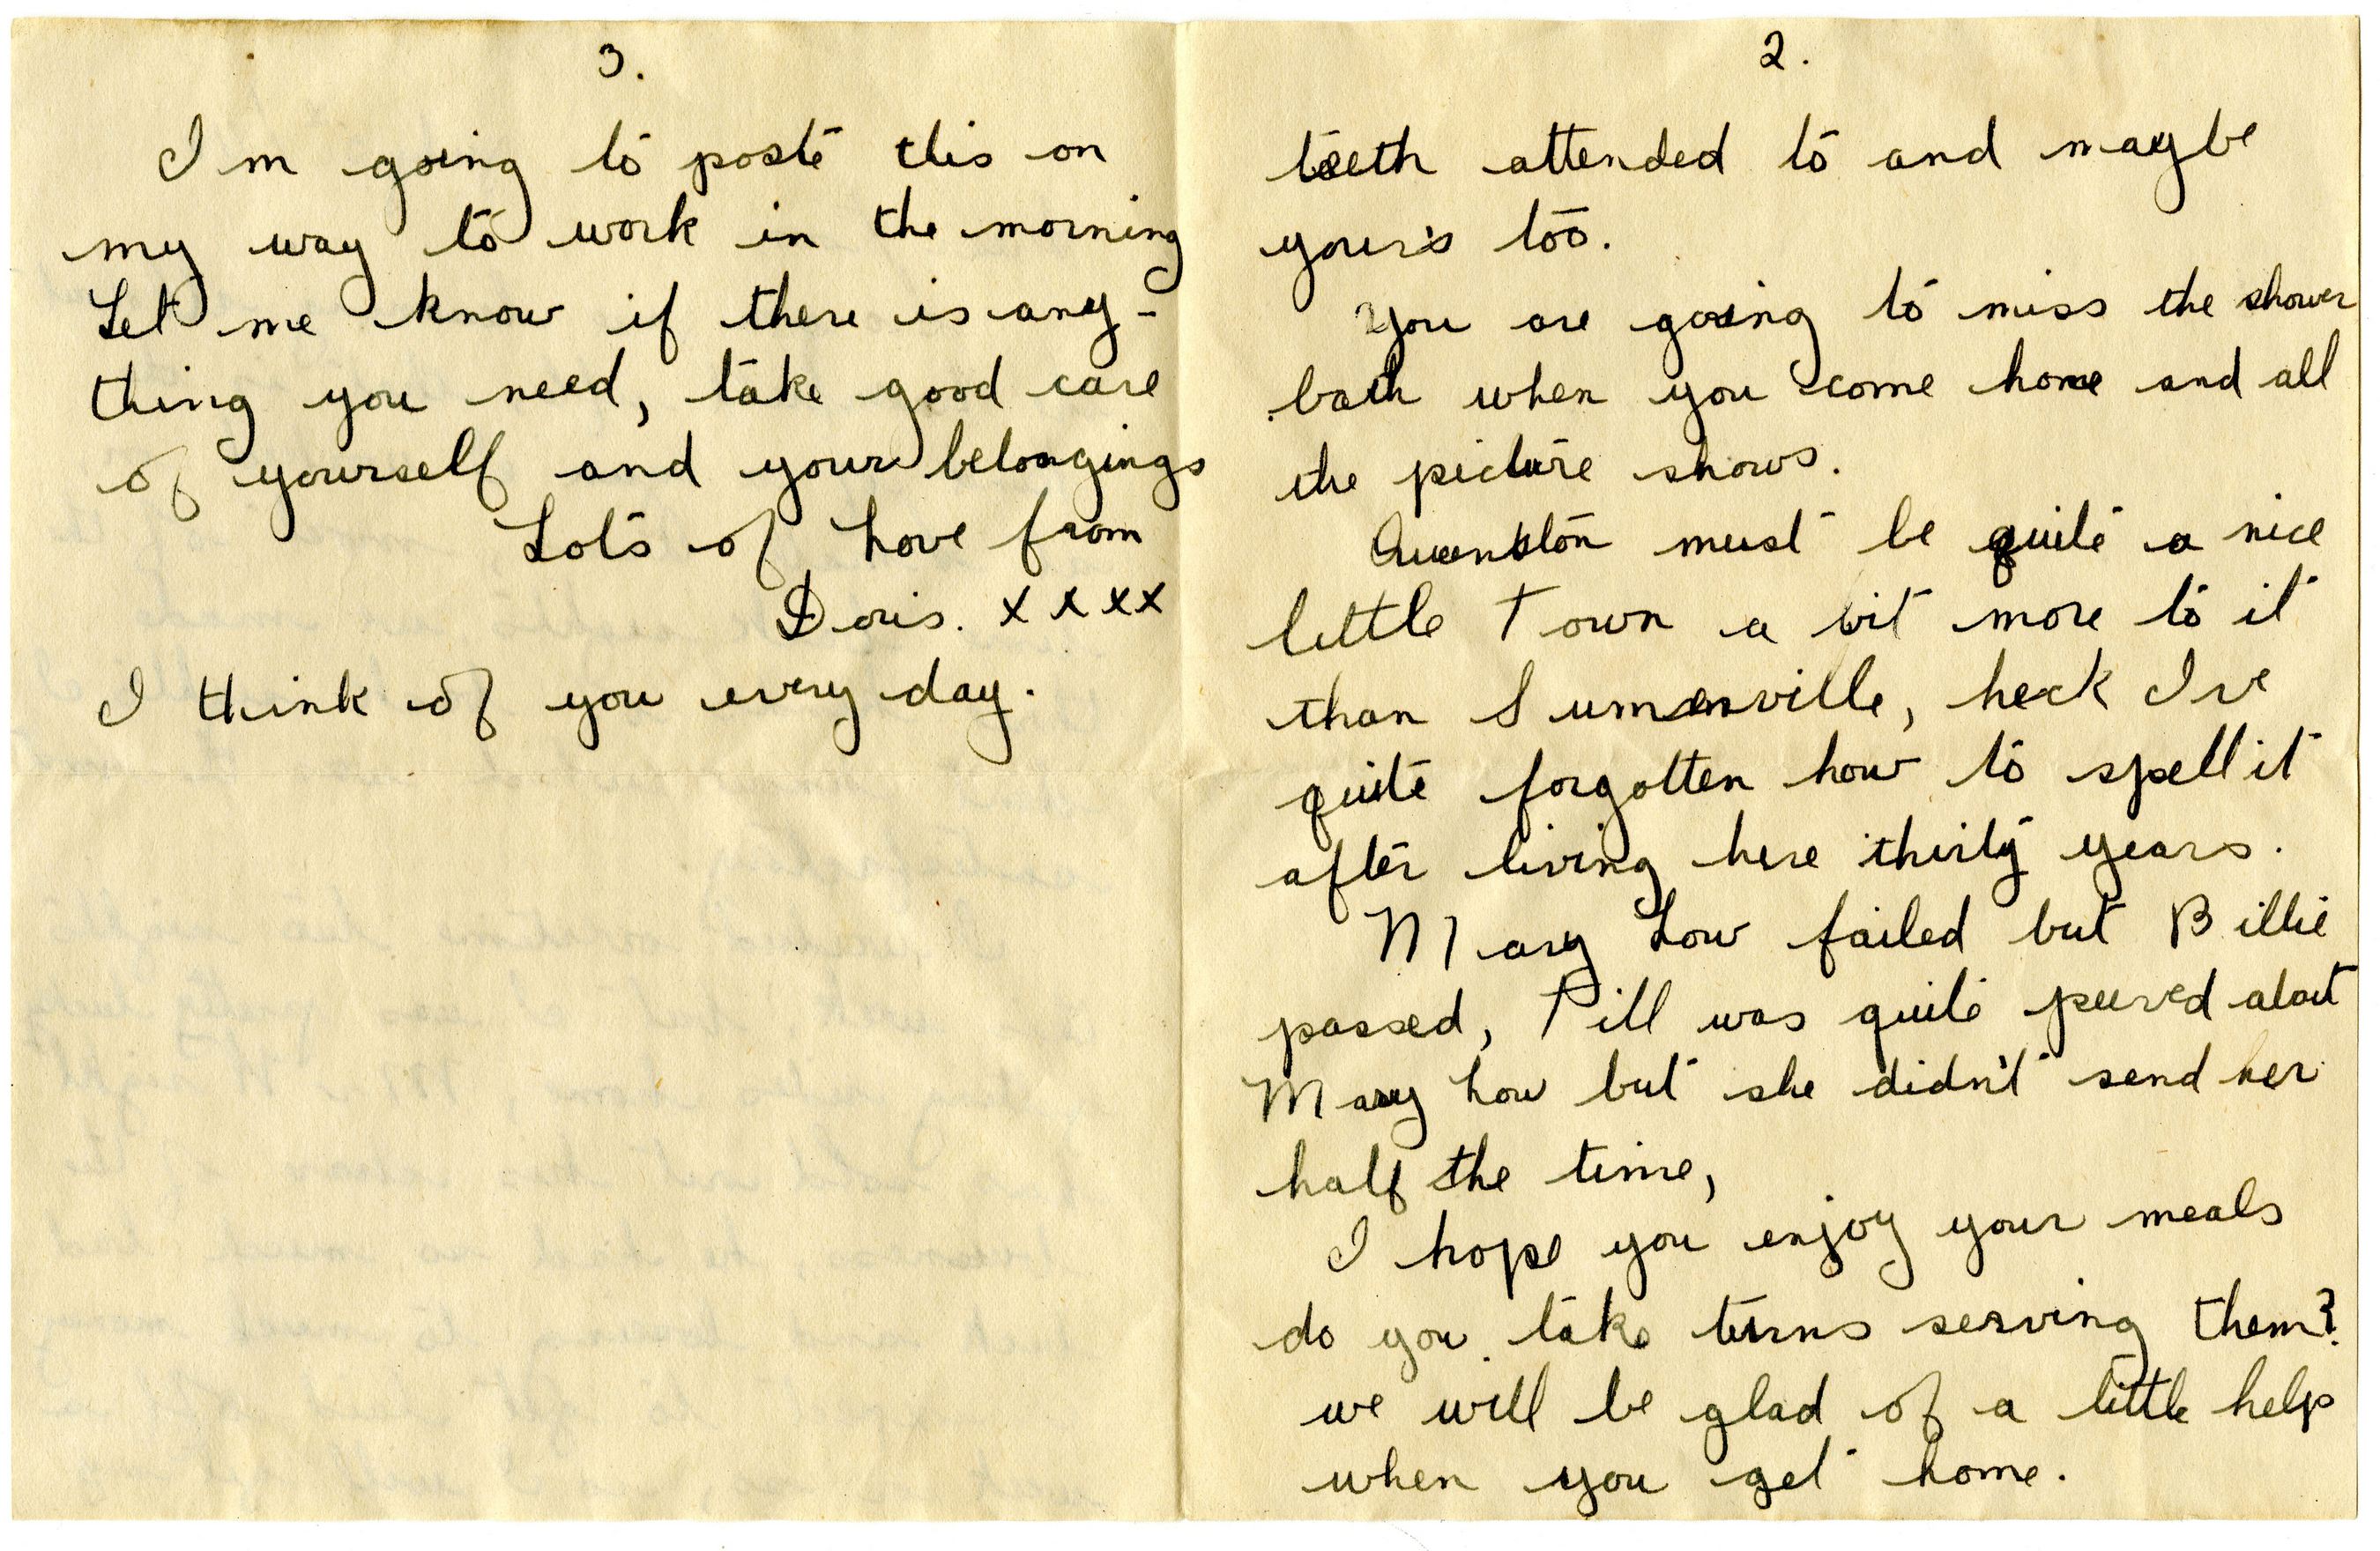 2.
teeth attended to and maybe
your's too.
You are going to miss the shower
bath when you come home and all
the picture shows.
must be quite a nice
little Town a bit more to it
than Sumenville, heck I've
quite forgotten how to spell it
after living here thirty years.
Mary Lou failed but Billie
passed, Till was quite peeved about
Mary Lou but she didn't send her
half the time,
I hope you enjoy your meals
do you take turns serving them?
we will be glad of a little help
when you get home.
3.
I'm going to poste this on
my way to work in the morning
Let me know if there is any-
thing you need, take good care
of yourself and your belongings
Lots of Love from
Doris. x x x x
I think of you every day.